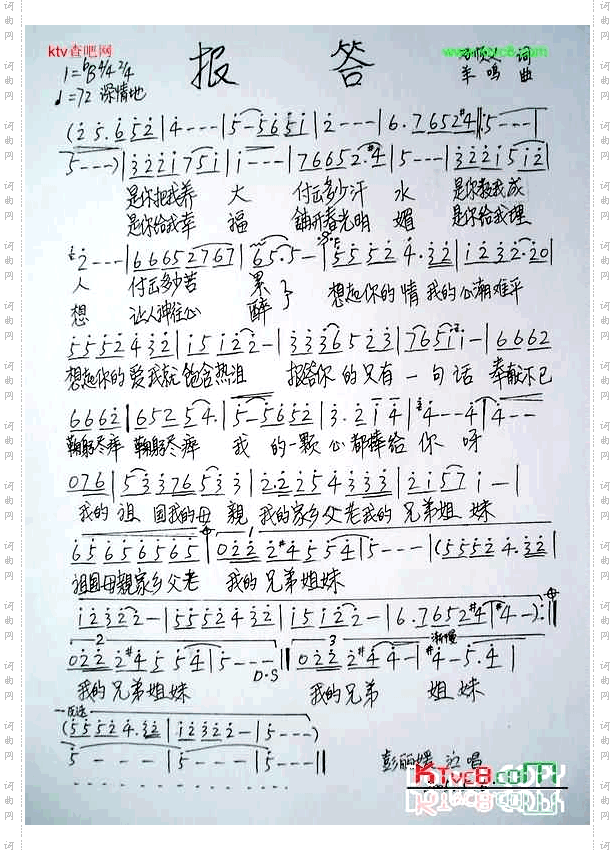 ktv查吧网
报 答
1=ᵇB 4/4 2/4
词
羊鸣 曲
♩=72 深情地
(2 5. 6 5 2 | 4 - - - | 5 - 5 6 5 1 | 2 - - - | 6. 7 6 5 2 #4 | 5 - - - |
5 - - - ) | 3 2 2 1 7 5 1 | 1 - - - | 7 6 6 5 2. #4 | 5 - - - | 3 2 2 1 5 1 2 |
是你把我养 大 付出多少汗 水 是你教我成
是你给我幸 福 铺开春光明 媚 是你给我理
2 - - - | 6 6 6 5 2 7 6 7 | 6 5. 5 - | 5 5 5 2 4. 3 2 | 1 2 3 2. 2 0 |
人 付出多少苦 累 想起你的情 我的心潮难平
想 让人神往心 醉
5 5 5 2 4 3 2 | 1 5 1 2 2 - | 3 3 3 6 5 2 3 | 7 6 5 1 1 - | 6 6 6 2
想起你的爱我就 饱含热泪 报答你 的只有 一句话 奉献不已
6 6 6 2 | 6 5 2 5 4. | 5 - 5 6 5 2 | 3. 2 1 4 | 4 - - 4 | 4 - -
鞠躬尽瘁 鞠躬尽瘁 我 的一颗 心都捧给 你 呀
0 7 6 | 5 3 3 7 6 5 3 3 | 2. 2 2 5 4 3 3 3 | 2 1 5 7 1 - |
我的 祖 国我的母 亲 我的家乡父老我的 兄弟姐 妹
6 5 6 5 6 5 6 5 | 0 2 2 2 #4 5 5 4 | 5 - - - | (5 5 5 2 4. 3 2 |
祖国母親家乡父老 我的 兄弟姐妹
1 2 3 2 2 - | 5 5 5 2 4 3 2 | 1 5 1 2 2 - | 6. 7 6 5 2 #4 | #4 - ) :||
2 3 渐慢
0 2 2 2 #4 5 5 4 | 5 - - - || 0 2 2 2 #4 4 - | #4 - 5. 4 |
D.S
我的 兄弟姐妹 我的 兄弟 姐妹
(5 5 5 2 4. 3 2 | 1 2 3 2 2 - | 5 - - - )
5 - - - | 5 - - - | 5 - - - ||
彭丽媛 演唱
KTvc8.com COPY
词曲网